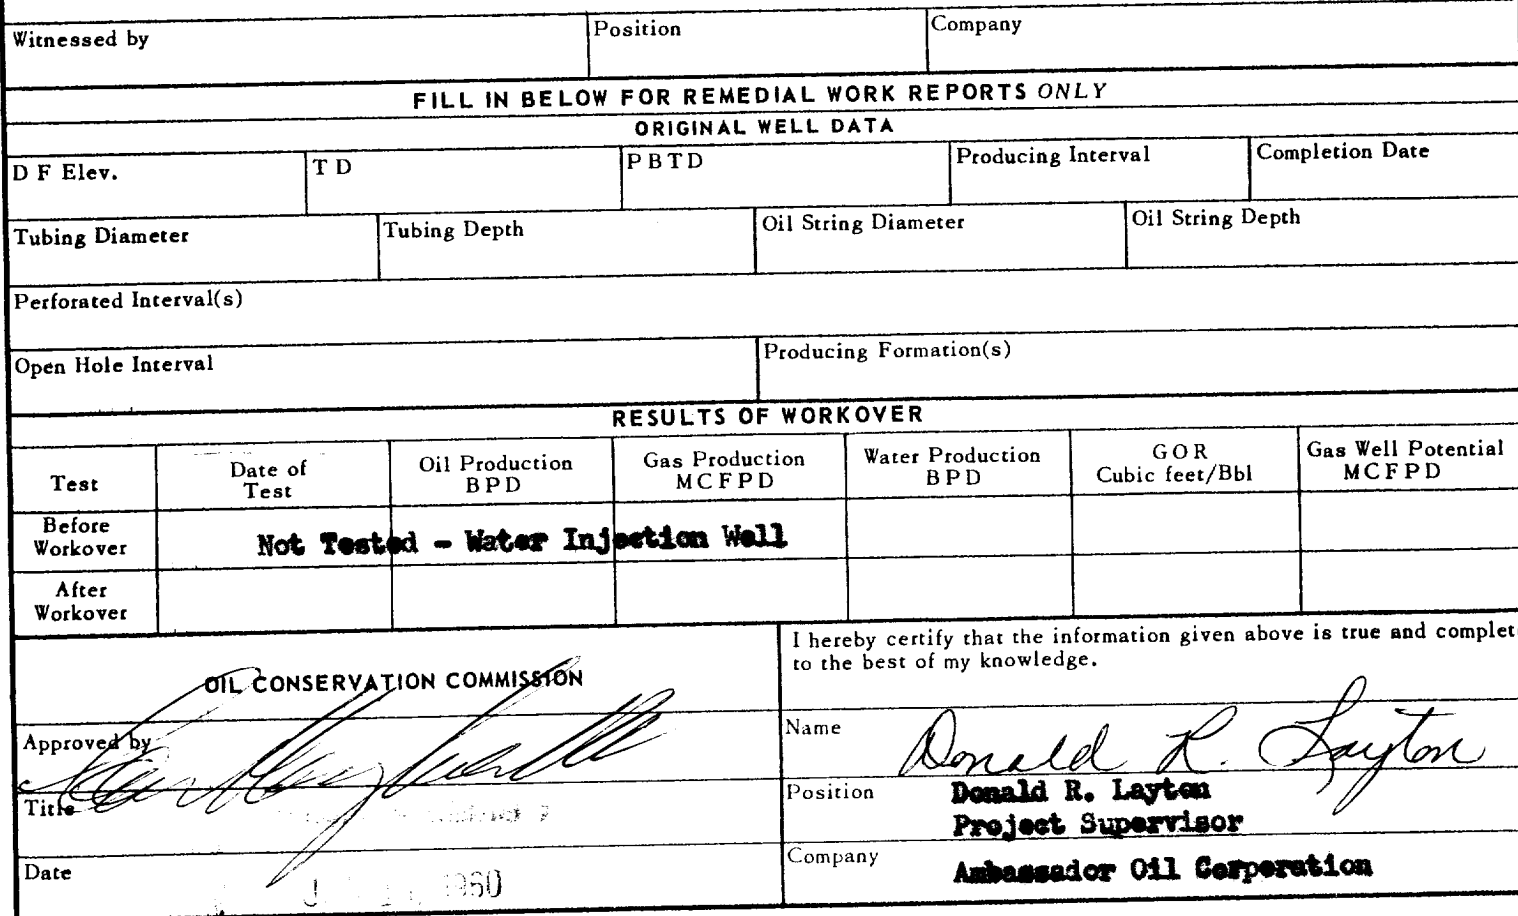 Witnessed by Position Company
FILL IN BELOW FOR REMEDIAL WORK REPORTS ONLY
ORIGINAL WELL DATA
D F Elev. T D P B T D Producing Interval Completion Date
Tubing Diameter Tubing Depth Oil String Diameter Oil String Depth
Perforated Interval(s)
Open Hole Interval Producing Formation(s)
RESULTS OF WORKOVER
Test Date of Test Oil Production BPD Gas Production MCFPD Water Production BPD GOR Cubic feet/Bbl Gas Well Potential MCFPD
Before Workover Not Tested - Water Injection Well
After Workover
I hereby certify that the information given above is true and complet
to the best of my knowledge.
OIL CONSERVATION COMMISSION
Approved by
Name Donald R. Layton
Title
Position Donald R. Layton
Project Supervisor
Date 1960
Company Ambassador Oil Corporation